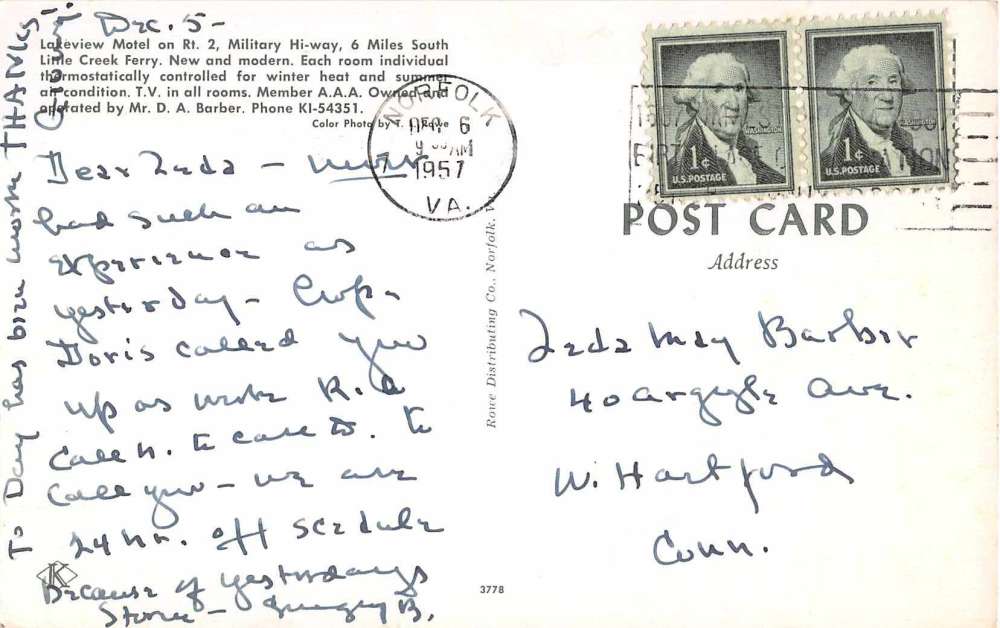 Dec. 5-
Lakeview Motel on Rt. 2, Military Hi-way, 6 Miles South
Little Creek Ferry. New and modern. Each room individual
thermostatically controlled for winter heat and summer
air condition. T.V. in all rooms. Member A.A.A. Owned and
operated by Mr. D. A. Barber. Phone KI-54351.
Color Photo by T.
Dear Zeda - never
had such an
experience as
yesterday -
Doris called you
up as
call N. to call D. to
call you - we are
24 hr. off scedule
Because of yesterdays
Storm - B.
To Day has been more THANKS-
Giving.
NORFOLK
VA.
DEC 6
9 AM
1957
1¢
WASHINGTON
U.S. POSTAGE
1¢
WASHINGTON
U.S. POSTAGE
POST CARD
Address
Zeda May Barber
40 Argyle Ave.
W. Hartford
Conn.
Rowe Distributing Co., Norfolk,
K
3778